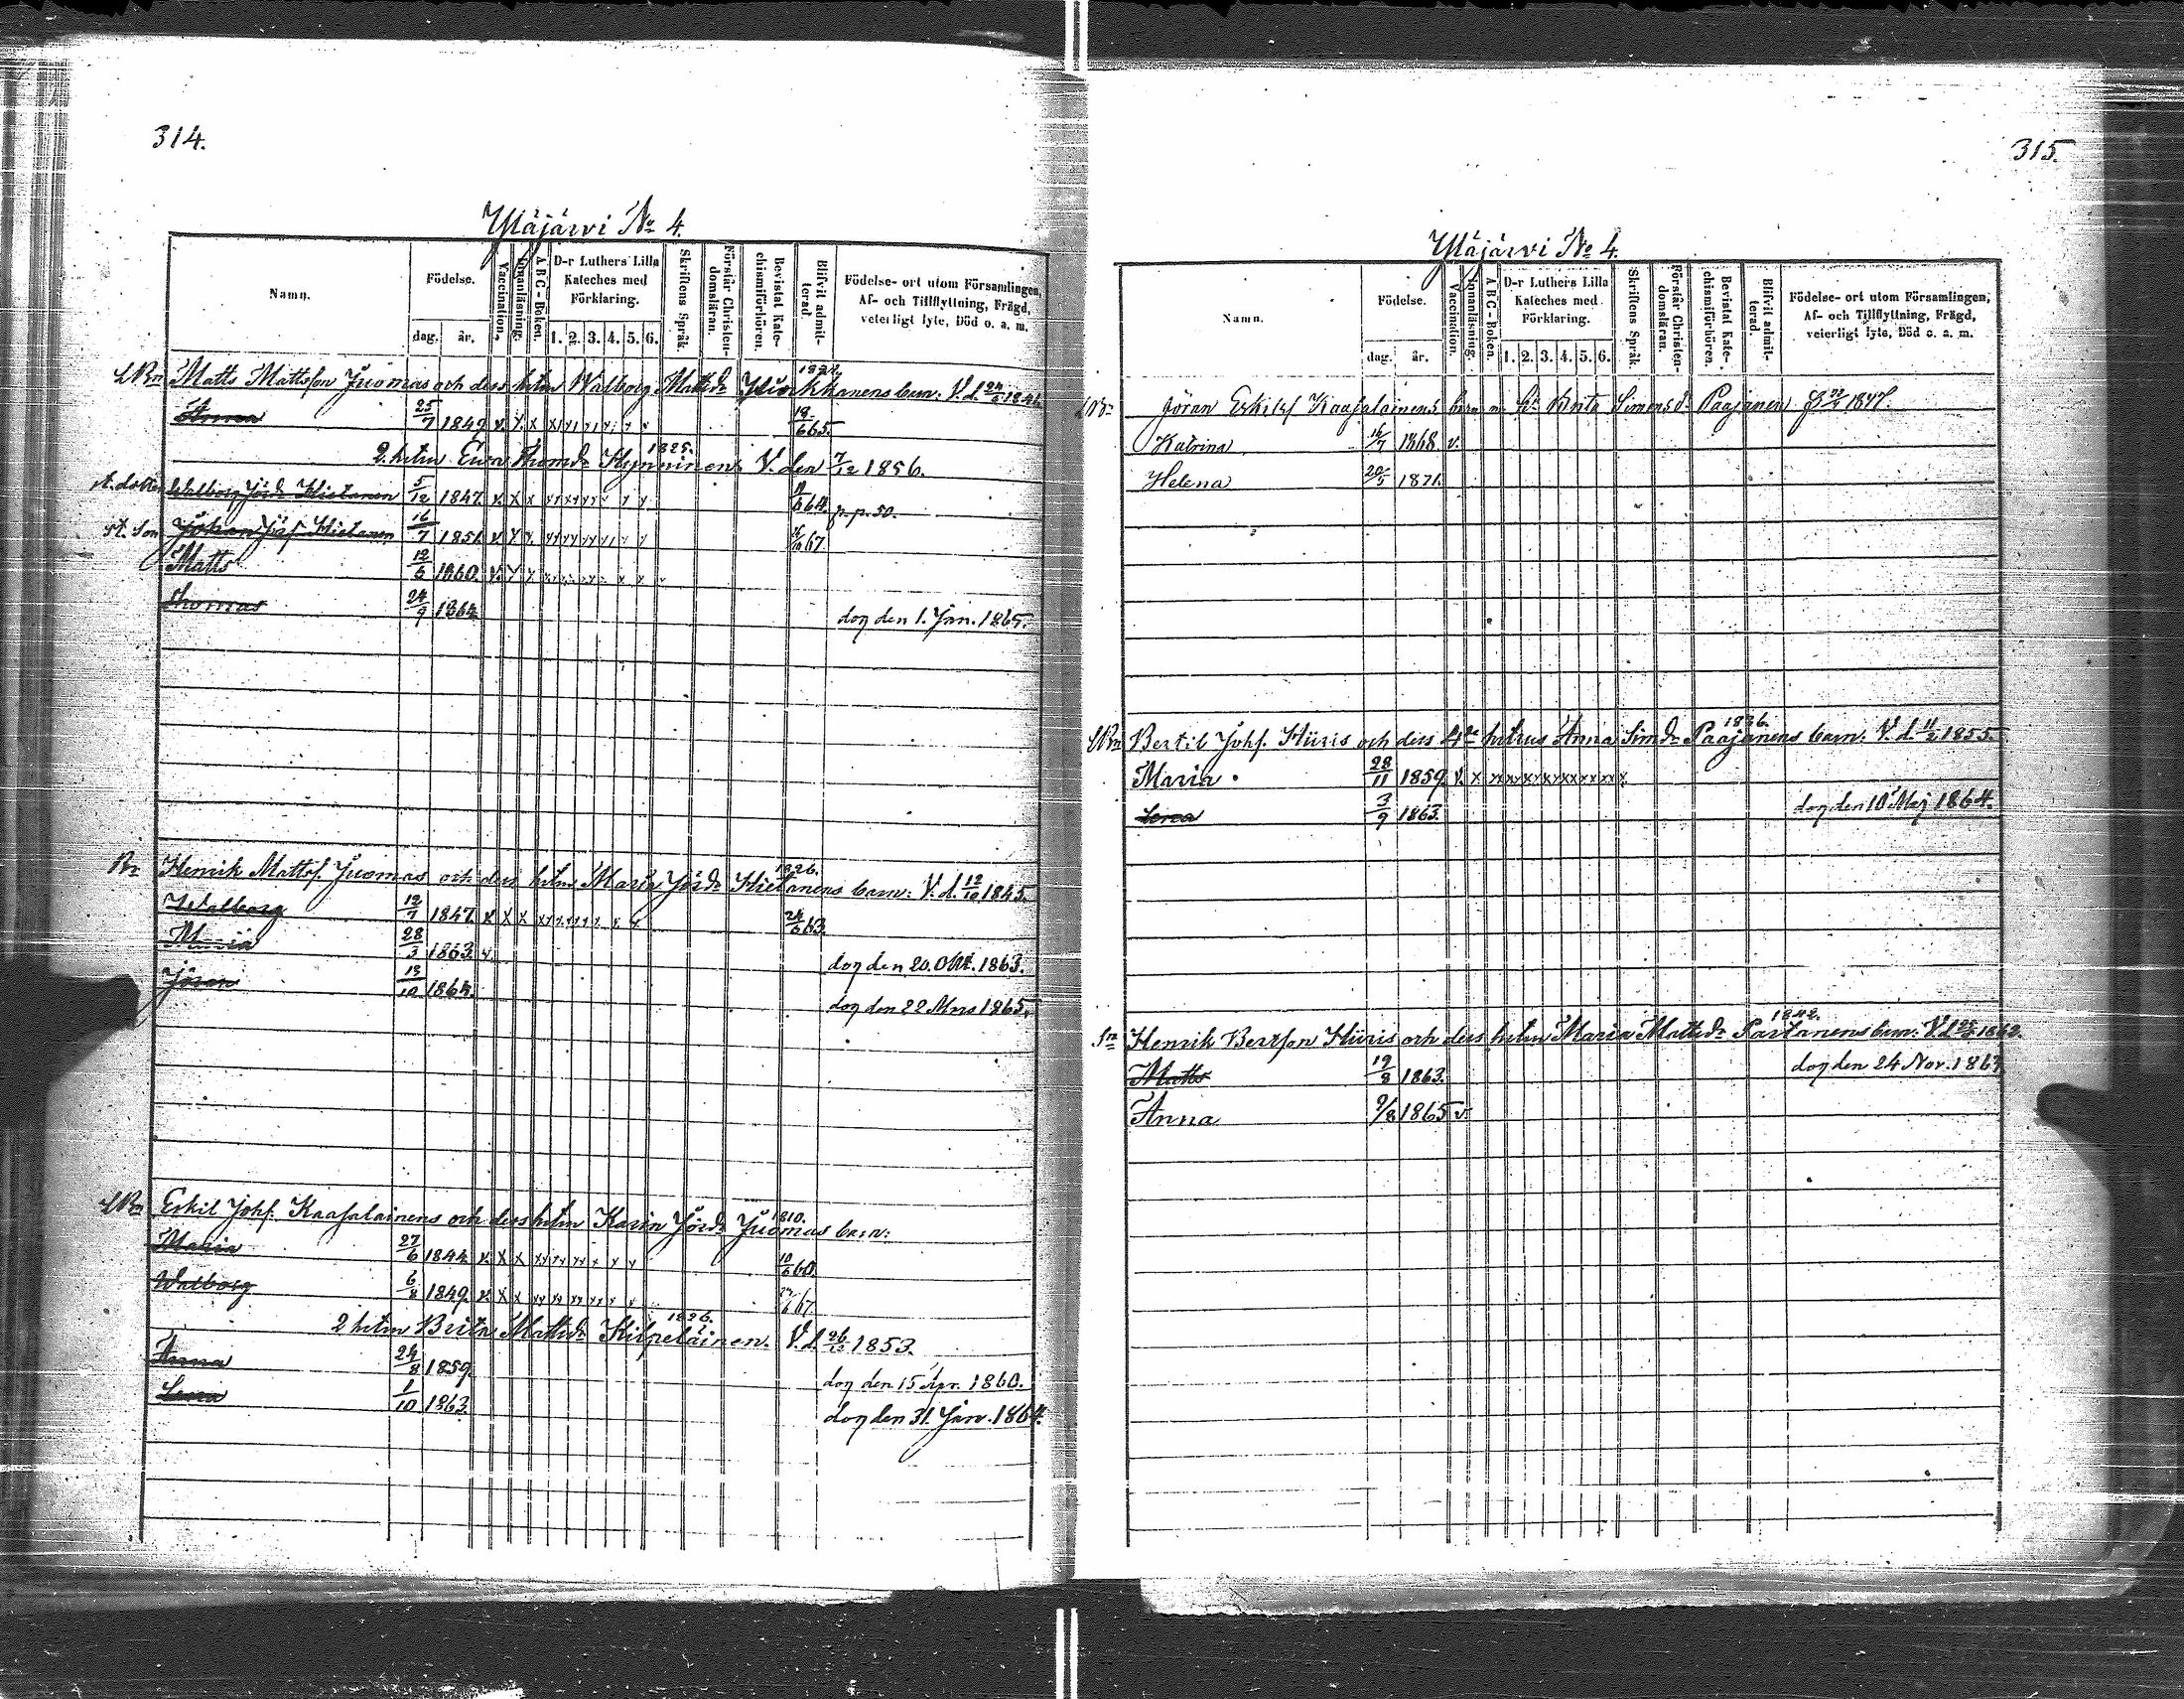 314.
Yläjärvi No 4.
Namn.
Födelse.
dag.
år.
Vaccination.
Innanläsning.
A B C - Boken.
D-r Luthers Lilla Kateches med Förklaring.
1. 2. 3. 4. 5. 6.
Skriftens Språk.
Förstår Christendomsläran.
Bevistat Katechismiförhören.
Blifvit admitterad.
Födelse- ort utom Församlingen, Af- och Tillflyttning, Frägd, veterligt lyte, Död o. a. m.
Matts Mattsson Juomas och dess hstru Walborg Mattsdr barn: V.d. 1846
Anna 25/7 1849 v. x x 18/6 65.
1825.
2. hstru Thomdr V. den 7/12 1856.
st. dotter Walborg Jördr Hietanen 5/12 1847. v. x x 64. p.p. 50.
st. Son Johan Jörs. Hietanen 16/7 1851. v x x 67
Matts 12/6 1860. v.
Thomas 24/9 1864. dog den 1. Jan. 1865.
1826.
Henrik Matts. Juomas och dess hstru Maria Jördr Hietanens barn: V.d. 12/10 1845.
Walborg 12/7 1847. v. x x 24/6 63.
Maria 28/3 1863. v. dog den 20. Okt. 1863.
Jöran 13/10 1864. dog den 22 Mars 1865.
1810.
Eskil Johs. Kaasalainens och dess hstru Karin Jördr Juomas barn:
Maria 27/6 1844. v. x x 10/6 60.
Walborg 6/8 1849. v. x x 67.
1826.
2 hstru Brita Mattsdr Kilpeläinen. V.d. 26/12 1853.
Anna 24/8 1859. dog den 15 Apr. 1860.
Lena 1/10 1863. dog den 31. Jan. 1864.
315.
Yläjärvi No 4.
Namn.
Födelse.
dag.
år.
Vaccination.
Innanläsning.
A B C - Boken.
D-r Luthers Lilla Kateches med Förklaring.
1. 2. 3. 4. 5. 6.
Skriftens Språk.
Förstår Christendomsläran.
Bevistat Katechismiförhören.
Blifvit admitterad.
Födelse- ort utom Församlingen, Af- och Tillflyttning, Frägd, veterligt lyte, Död o. a. m.
Jöran Eskilss Kaasalainens barn m. Brita Simonsdr Paajanen 1847.
Katrina 16/7 1868 v.
Helena 20/5 1871.
1826.
Bertil Johs. Hüris och dess hstrus Anna Simdr Paajanens barn: V.d. 1855.
Maria 28/11 1859. v. x
Lena 3/9 1863. dog den 10 Maj 1864.
1842.
Henrik Bertsson Hüris och dess hstru Maria Mattsdr Partanens barn: V.d. 1862.
Matts 19/8 1863. dog den 24 Nov. 1863
Anna 9/8 1865 v.